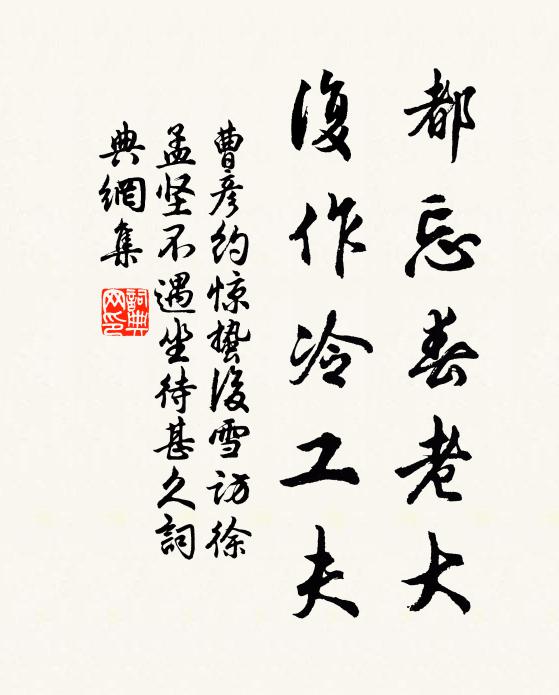 都忘春老大
復作冷工夫
曹彦約惊蟄後雪訪徐
孟坚不遇坐待甚久詞
典網集
詞典网印